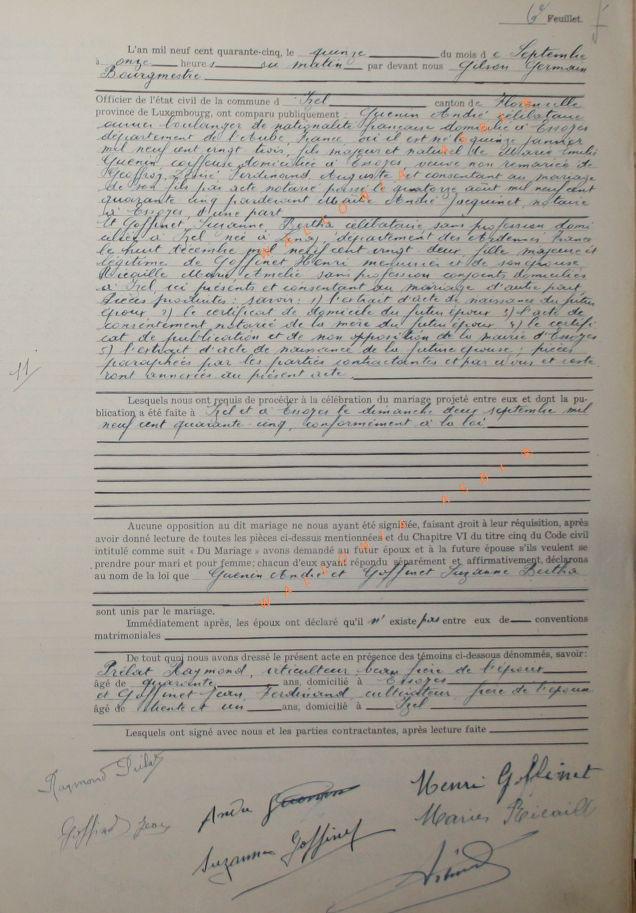 6e Feuillet.
L'an mil neuf cent quarante-cinq, le quinze du mois de Septembre
à onze heures du matin par devant nous Gilson Germain
Bourgmestre
Officier de l'état civil de la commune d'Izel canton de Florenville
province de Luxembourg, ont comparu publiquement: Guenin André célibataire
ouvrier boulanger de nationalité française domicilié à Essoyes
département de l'Aube, France, où il est né le quinze janvier
mil neuf cent vingt trois, fils majeur et naturel de Marie
Guenin coiffeuse domiciliée à Essoyes, veuve non remariée de
Ferdinand Auguste et consentant au mariage
de son fils par acte notarié passé le quatorze août mil neuf cent
quarante cinq pardevant Maître André Jacquinet, notaire
à Essoyes, d'une part
Et Goffinet Suzanne, Bertha célibataire sans profession domi
ciliée à Izel née à département des Ardennes France
le huit décembre mil neuf cent vingt deux, fille majeure et
légitime de Goffinet Henri menuisier et de son épouse
Marie Amélie sans profession conjoints domiciliés
à Izel, ici présents et consentant au mariage d'autre part.
Pièces produites: savoir: 1) l'extrait d'acte de naissance du futur
époux 2) le certificat de domicile du futur époux 3) l'acte de
consentement notarié de la mère du futur époux 4) le certifi
cat de publication et de non opposition de la mairie d'Essoyes
5) l'extrait d'acte de naissance de la future épouse; pièces
paraphées par les parties contractantes et par nous et reste
ront annexées au présent acte.
11/
Lesquels nous ont requis de procéder à la célébration du mariage projeté entre eux et dont la pu-
blication a été faite à Izel et à Essoyes le dimanche deux septembre mil
neuf cent quarante-cinq, conformément à la loi
Aucune opposition au dit mariage ne nous ayant été signifiée, faisant droit à leur réquisition, après
avoir donné lecture de toutes les pièces ci-dessus mentionnées et du Chapitre VI du titre cinq du Code civil
intitulé comme suit « Du Mariage » avons demandé au futur époux et à la future épouse s'ils veulent se
prendre pour mari et pour femme; chacun d'eux ayant répondu séparément et affirmativement, déclarons
au nom de la loi que Guenin André et Goffinet Suzanne Bertha
sont unis par le mariage.
Immédiatement après, les époux ont déclaré qu'il n'existe pas entre eux de conventions
matrimoniales
De tout quoi nous avons dressé le présent acte en présence des témoins ci-dessous dénommés, savoir:
Prélat Raymond, viticulteur beau frère de l'époux
âgé de quarante ans, domicilié à Essoyes
et Goffinet Jean, Ferdinand, cultivateur, frère de l'épouse
âgé de trente et un ans, domicilié à Izel
Lesquels ont signé avec nous et les parties contractantes, après lecture faite
Raymond Prélat
Goffinet Jean
André Guenin
Suzanne Goffinet
Henri Goffinet
WALLONIA ASBL
WALLONIA ASBL